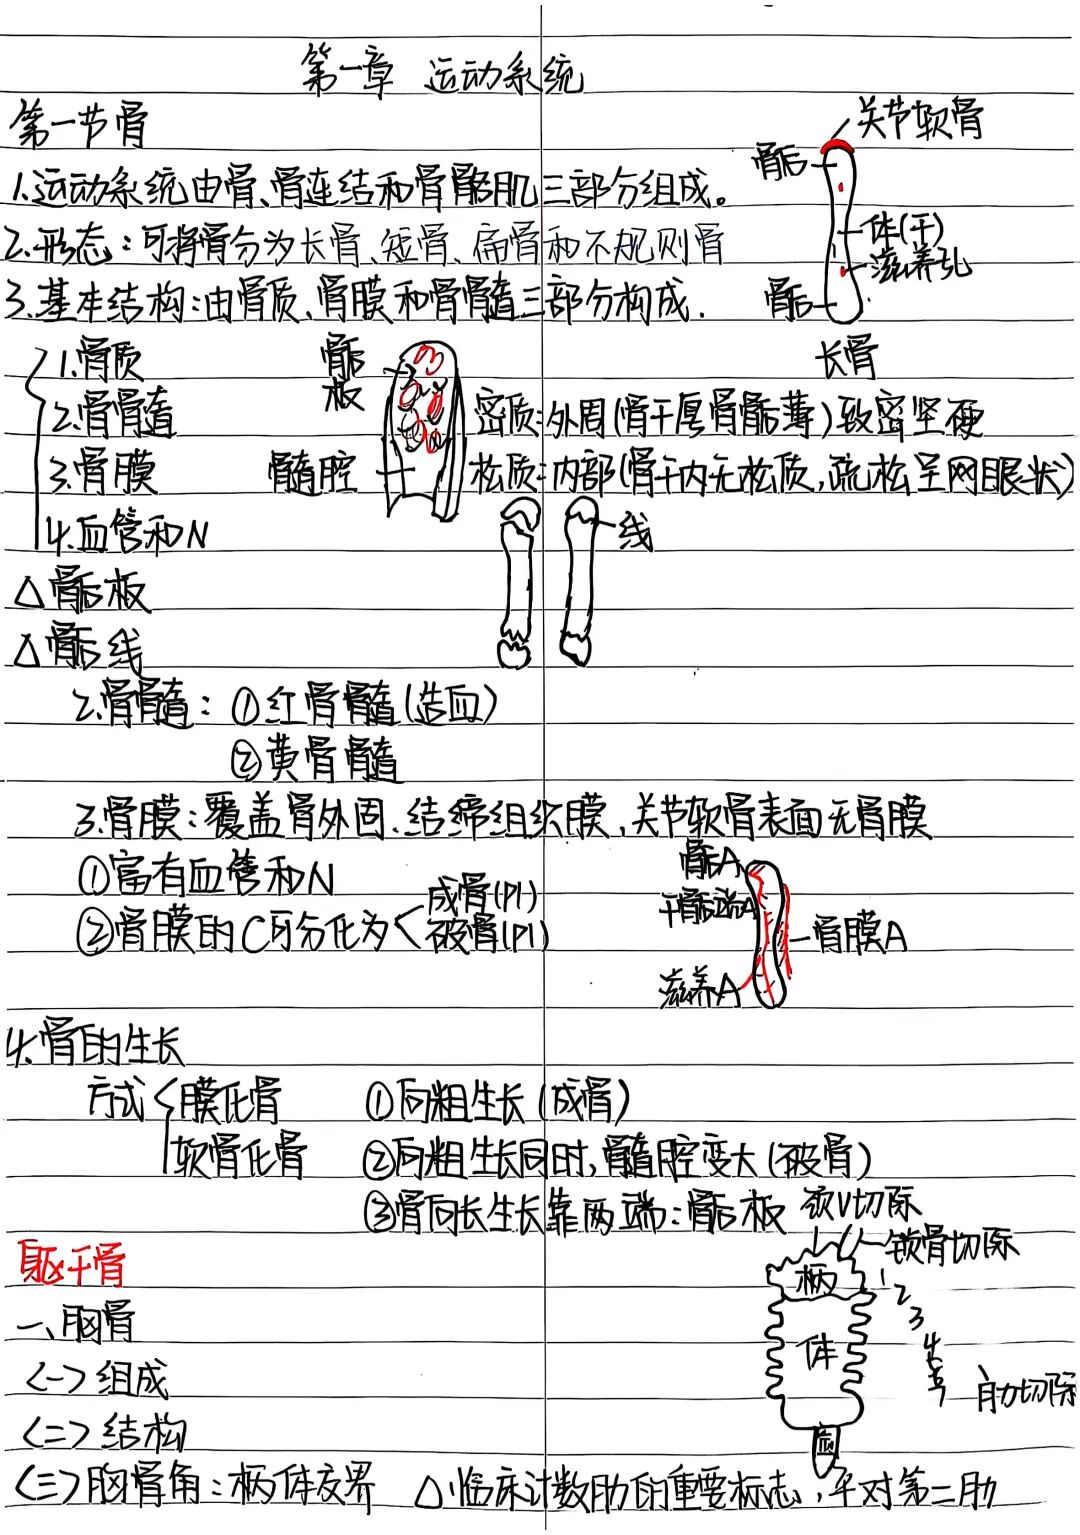 第一章 运动系统
第一节骨
关节软骨
骨后
1.运动系统由骨、骨连结和骨骼肌三部分组成。
体(干)
2.形态：可将骨分为长骨、短骨、扁骨和不规则骨
滋养孔
3.基本结构：由骨质、骨膜和骨髓三部分构成.
骨后
长骨
1.骨质
骺板
2.骨骨髓
密质：外周(骨干厚骨骺薄)致密坚硬
3.骨膜
髓腔
松质：内部(骨干内无松质,疏松呈网眼状)
4.血管和N
线
△骺板
△骺线
2.骨髓：①红骨髓(造血)
②黄骨髓
3.骨膜：覆盖骨外固、结缔组织膜、关节软骨表面无骨膜
①富有血管和N
②骨膜的C可分化为
成骨(P1)
破骨(P1)
骺A
干骺端A
骨膜A
滋养A
4.骨的生长
方式
膜化骨
软骨化骨
①向粗生长(成骨)
②向粗生长同时,骨髓腔变大(破骨)
③骨向长生长靠两端：骺板
颈V切际
锁骨切际
躯干骨
柄
1
2
3
4
5
一、胸骨
体
<一>组成
肋切际
<二>结构
<三>胸骨角：柄体交界 △.临床计数肋的重要标志,平对第二肋